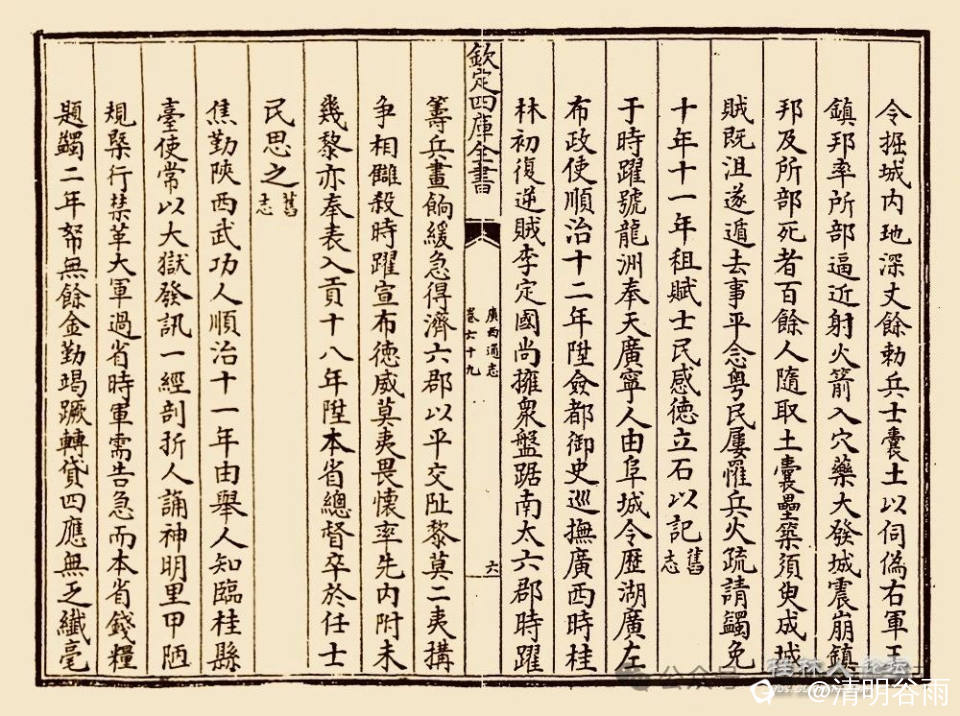 令掘城内地深丈餘勅兵士囊土以伺偽右軍王
鎮邦率所部逼近射火箭入穴藥大發城震崩鎮
邦及所部死者百餘人隨取土囊壘築須臾成城
賊既沮遂遁去事平念粤民屢罹兵火疏請蠲免
十年十一年租賦士民感德立石以記舊志
于時躍號龍洲奉天廣寧人由阜城令歴湖廣左
布政使順治十二年陞僉都御史巡撫廣西時桂
林初復逆賊李定國尚擁衆盤踞南太六郡時躍
欽定四庫全書
廣西通志
卷六十九
六
籌兵畫餉緩急得濟六郡以平交阯黎莫二夷搆
争相讎殺時躍宣布德威莫夷畏懷率先内附未
幾黎亦奉表入貢十八年陞本省總督卒於任士
民思之舊志
焦勤陜西武功人順治十一年由舉人知臨桂縣
臺使常以大獄發訊一經剖折人誦神明里甲陋
規槩行禁革大軍過省時軍需告急而本省錢糧
題蠲二年帑無餘金勤竭蹶轉貸四應無乏纎毫
公众号
桂林人论坛
@清明谷雨